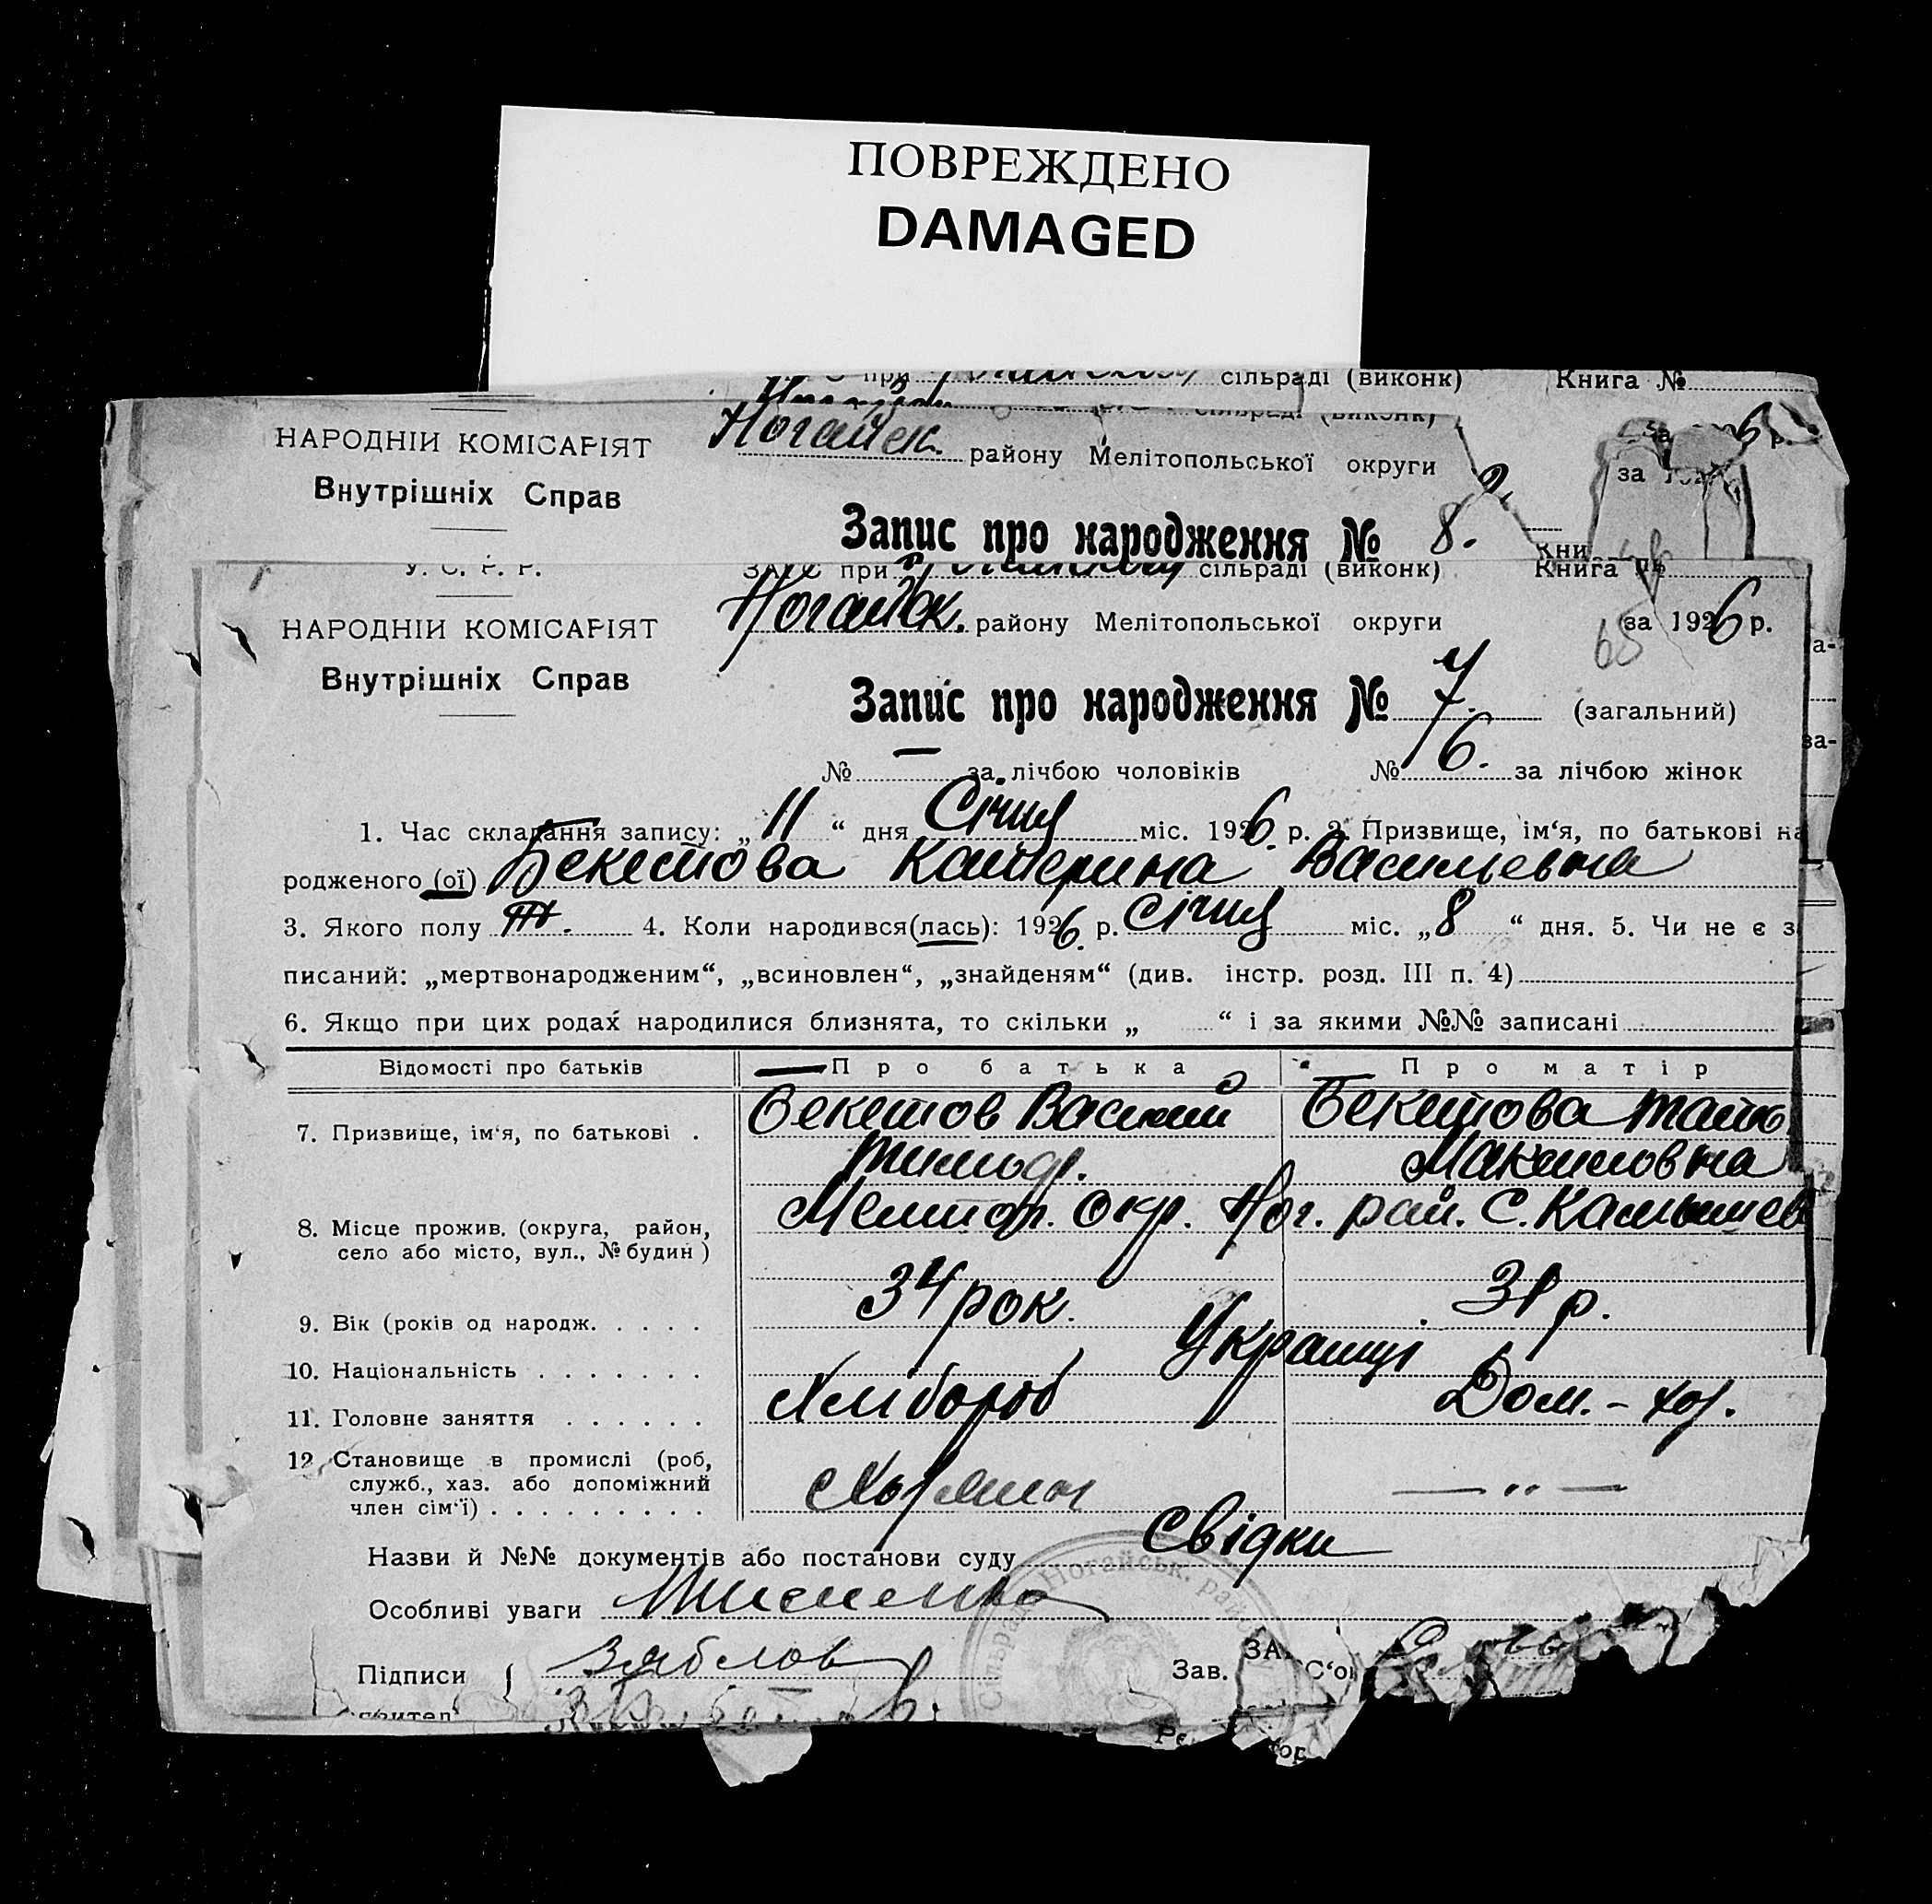 ПОВРЕЖДЕНО
DAMAGED
при сільраді (виконк) Книга №
НАРОДНІЙ КОМІСАРІЯТ
Ногайск. району Мелітопольської округи за
Внутрішніх Справ
Запис про народження № 8.
У. С. Р. Р.
ЗАГС при сільраді (виконк) Книга №
НАРОДНІЙ КОМІСАРІЯТ
Ногайск. району Мелітопольської округи за 1926 р.
65
Внутрішніх Справ
Запис про народження № 7. (загальний)
№ — за лічбою чоловіків № 6. за лічбою жінок
1. Час складання запису: „11“ дня Січня міс. 1926. р. 2. Призвище, ім‘я, по батькові на
родженого (ої) Бекетова Катерина Васильевна
3. Якого полу 4. Коли народився(лась): 1926. р. Січня міс. „8“ дня. 5. Чи не є з
писаний: „мертвонародженим“, „всиновлен“, „знайденям“ (див. інстр. розд. III п. 4)
6. Якщо при цих родах народилися близнята, то скільки „ “ і за якими №№ записані
Відомості про батьків Про батька Про матір
7. Призвище, ім‘я, по батькові . Бекетов Василий Бекетова
Тимоф. Максимовна
8. Місце прожив. (округа, район, Мелитоп. окр. Ног. рай. С. Камышев
село або місто, вул., № будин )
9. Вік (років од народж. . . . . 34 рок. 31 р.
10. Національність . . . . . . . Українці
11. Головне заняття . . . . . . Хлібороб Дом.-хоз.
12. Становище в промислі (роб,
служб., хаз. або допоміжний
член сім‘ї) . . . . . . . . . — „ —
Назви й №№ документів або постанови суду Свідки
Особливі уваги
Ногайськ. район
Сільрад
Підписи Зяблов Зав. ЗА С‘ом